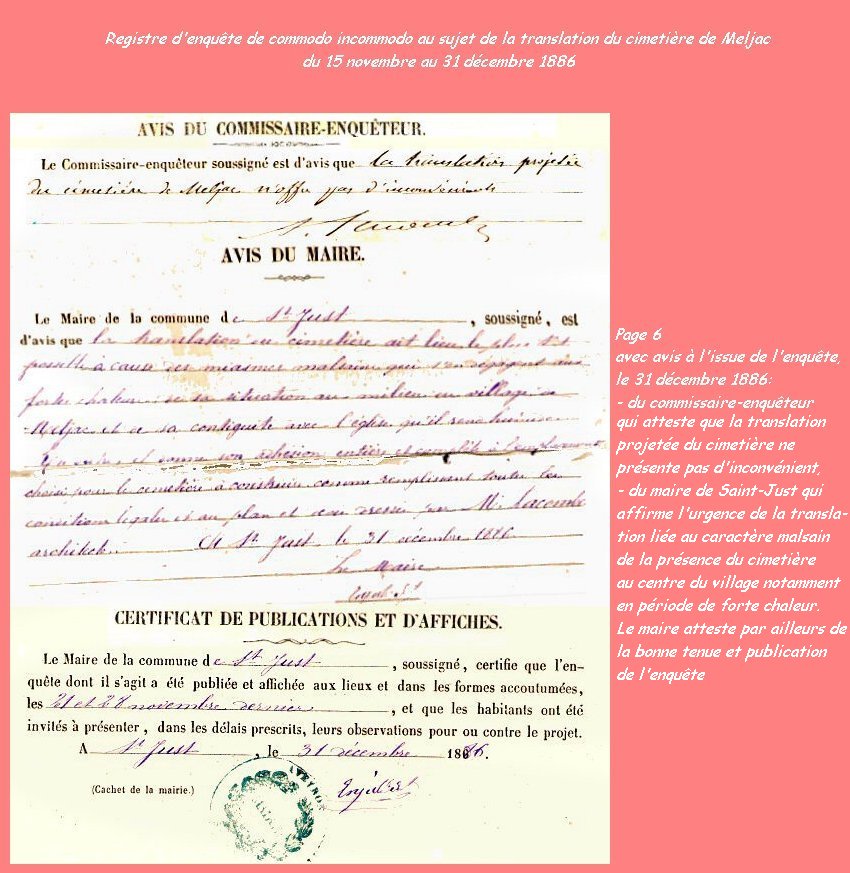 Registre d'enquête de commodo incommodo au sujet de la translation du cimetière de Meljac
du 15 novembre au 31 décembre 1886
AVIS DU COMMISSAIRE-ENQUÊTEUR.
Le Commissaire-enquêteur soussigné est d'avis que la translation projetée
du cimetière de Meljac n'offre pas d'inconvénients
AVIS DU MAIRE.
Le Maire de la commune de St Just, soussigné, est
d'avis que la translation du cimetière ait lieu le plus tôt
possible à cause des miasmes malsains qui s'en dégagent aux
fortes chaleurs, de sa situation au milieu du village de
Meljac et de sa contiguité avec l'église qu'il rend humide
et donne son adhésion entière et complète à l'emplacement
choisi pour le cimetière à construire comme remplissant toutes les
conditions légales et au plan et devis dressés par M. Lacombe
architecte. A St Just le 31 décembre 1886
Le Maire
CERTIFICAT DE PUBLICATIONS ET D'AFFICHES.
Le Maire de la commune de St Just, soussigné, certifie que l'en-
quête dont il s'agit a été publiée et affichée aux lieux et dans les formes accoutumées,
les 21 et 28 novembre dernier, et que les habitants ont été
invités à présenter, dans les délais prescrits, leurs observations pour ou contre le projet.
A St Just, le 31 décembre 1886.
(Cachet de la mairie.)
AVEYRON
Page 6
avec avis à l'issue de l'enquête,
le 31 décembre 1886:
- du commissaire-enquêteur
qui atteste que la translation
projetée du cimetière ne
présente pas d'inconvénient,
- du maire de Saint-Just qui
affirme l'urgence de la transla-
tion liée au caractère malsain
de la présence du cimetière
au centre du village notamment
en période de forte chaleur.
Le maire atteste par ailleurs de
la bonne tenue et publication
de l'enquête